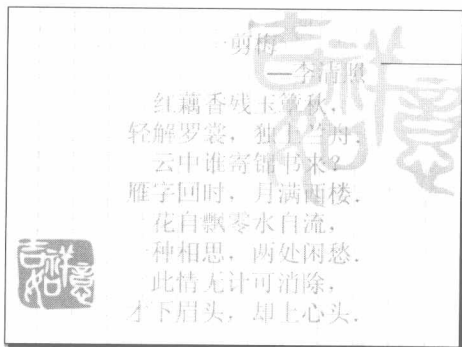 一剪梅
—李清照
红藕香残玉簟秋,
轻解罗裳，独上兰舟.
云中谁寄锦书来?
雁字回时，月满西楼.
花自飘零水自流,
一种相思，两处闲愁.
此情无计可消除,
才下眉头，却上心头.
吉祥如意
吉祥如意